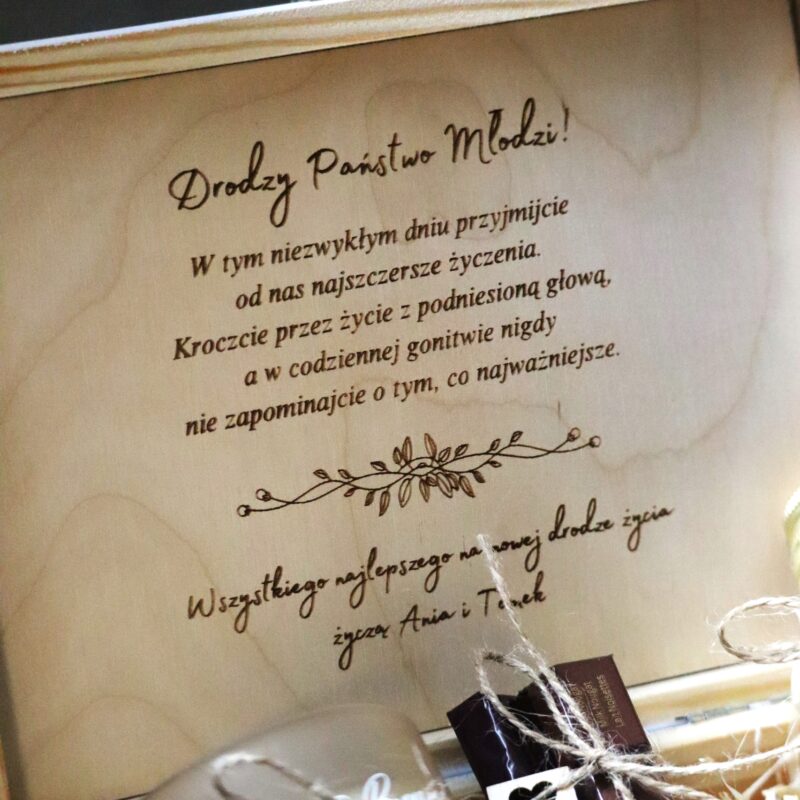 Drodzy Państwo Młodzi!
W tym niezwykłym dniu przyjmijcie
od nas najszczersze życzenia.
Kroczcie przez życie z podniesioną głową,
a w codziennej gonitwie nigdy
nie zapominajcie o tym, co najważniejsze.
Wszystkiego najlepszego na nowej drodze życia
życzą Ania i Tomek